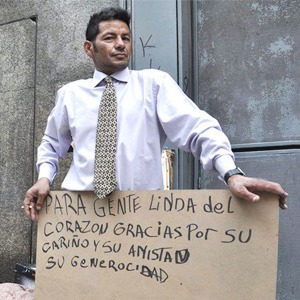 PARA GENTE LINDA del
CORAZON GRACIAS POR SU
CARIÑO Y SU AMISTAD
SU GENEROCIDAD